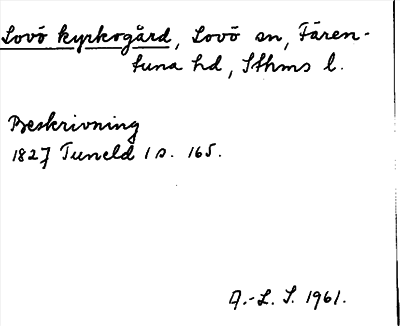 Lovö kyrkogård, Lovö sn, Fären-
tuna hd, Sthms l.
Beskrivning
1827 Tuneld I s. 165.
A.-L. S. 1961.